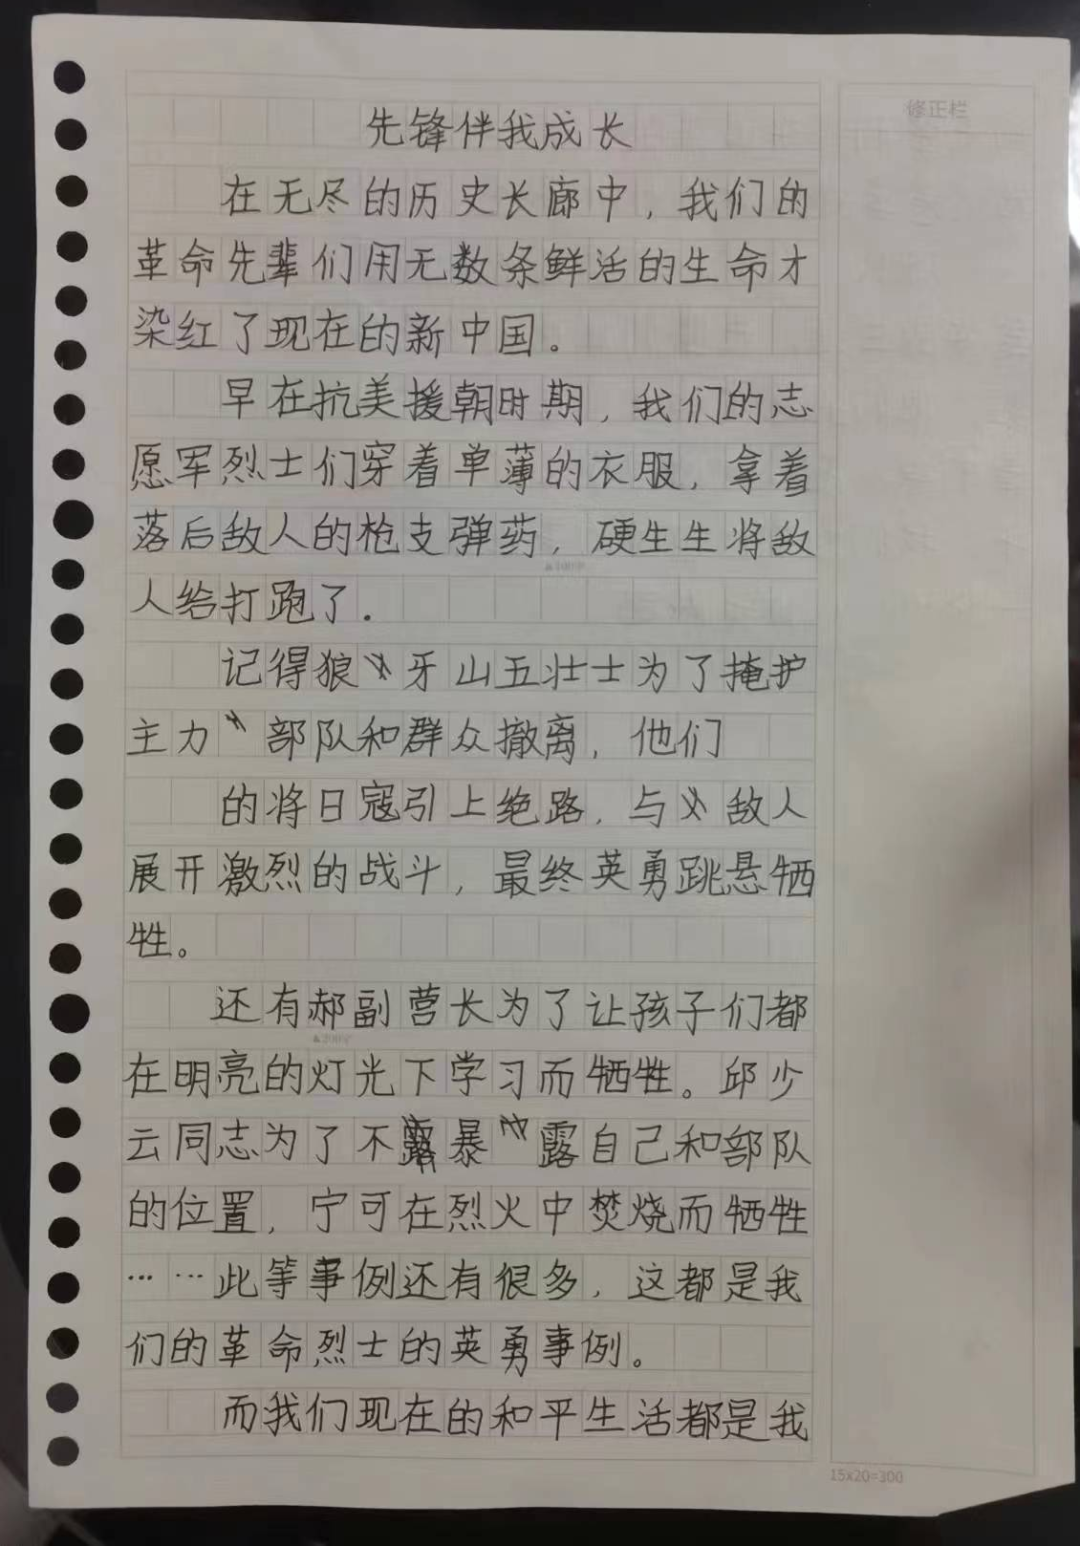 修正栏
先锋伴我成长
在无尽的历史长廊中，我们的
革命先辈们用无数条鲜活的生命才
染红了现在的新中国。
早在抗美援朝时期，我们的志
愿军烈士们穿着单薄的衣服，拿着
落后敌人的枪支弹药，硬生生将敌
▲100字
人给打跑了.
记得狼牙山五壮士为了掩护
主力部队和群众撤离，他们
的将日寇引上绝路，与敌人
展开激烈的战斗，最终英勇跳悬牺
牲。
还有郝副营长为了让孩子们都
▲200字
在明亮的灯光下学习而牺牲。邱少
云同志为了不暴露自己和部队
的位置，宁可在烈火中焚烧而牺牲
……此等事例还有很多，这都是我
们的革命烈士的英勇事例。
而我们现在的和平生活都是我
15x20=300